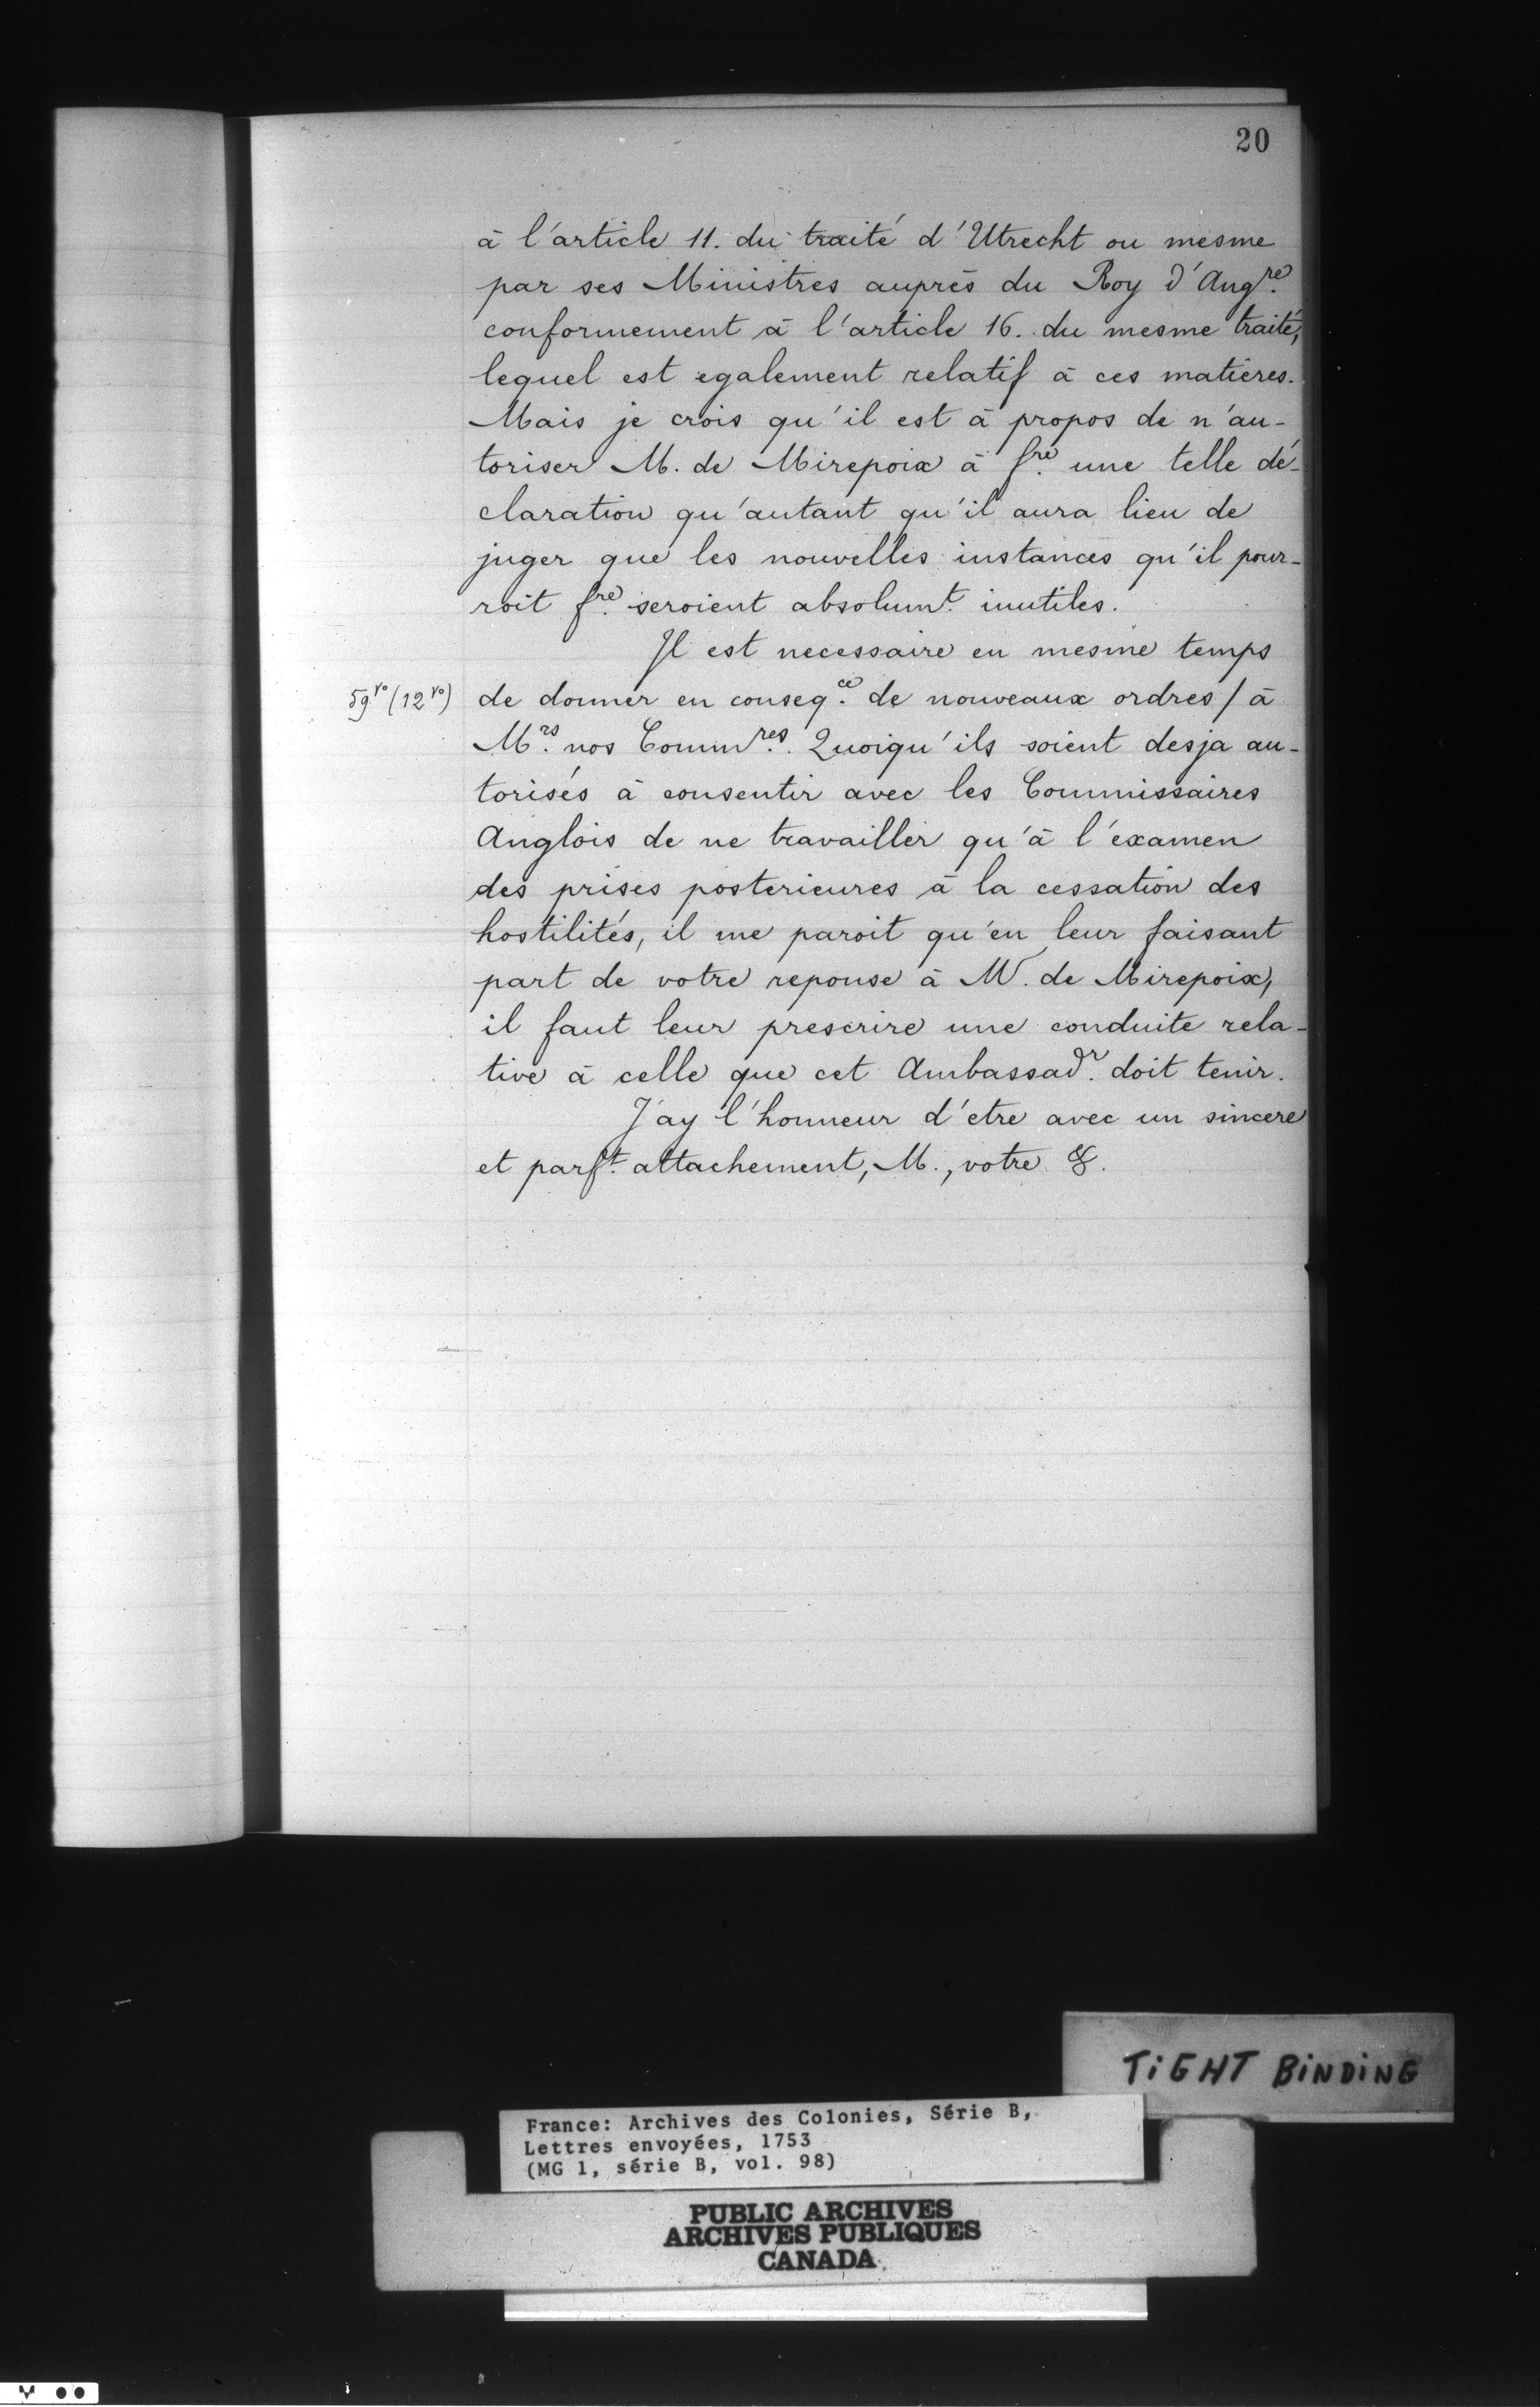 20
à l'article 11. du traité d'Utrecht ou mesme
par ses Ministres auprès du Roy d'Ang^re.
conformement à l'article 16. du mesme traité,
lequel est egalement relatif à ces matieres.
Mais je crois qu'il est à propos de n'au-
toriser M. de Mirepoix à f^re. une telle dé-
claration qu'autant qu'il aura lieu de
juger que les nouvelles instances qu'il pour-
roit f^re. seroient absolum^t. inutiles.
Il est necessaire en mesme temps
59^vo (12^vo) de donner en conseq^ce. de nouveaux ordres / à
M^rs. nos Comm^res. Quoiqu'ils soient desja au-
torisés à consentir avec les Commissaires
Anglois de ne travailler qu'à l'examen
des prises posterieures à la cessation des
hostilités, il me paroit qu'en leur faisant
part de votre reponse à M. de Mirepoix,
il faut leur prescrire une conduite rela-
tive à celle que cet Ambassad^r. doit tenir.
J'ay l'honneur d'etre avec un sincere
et parf^t. attachement, M., votre &.
TIGHT BINDING
France: Archives des Colonies, Série B,
Lettres envoyées, 1753
(MG 1, série B, vol. 98)
PUBLIC ARCHIVES
ARCHIVES PUBLIQUES
CANADA